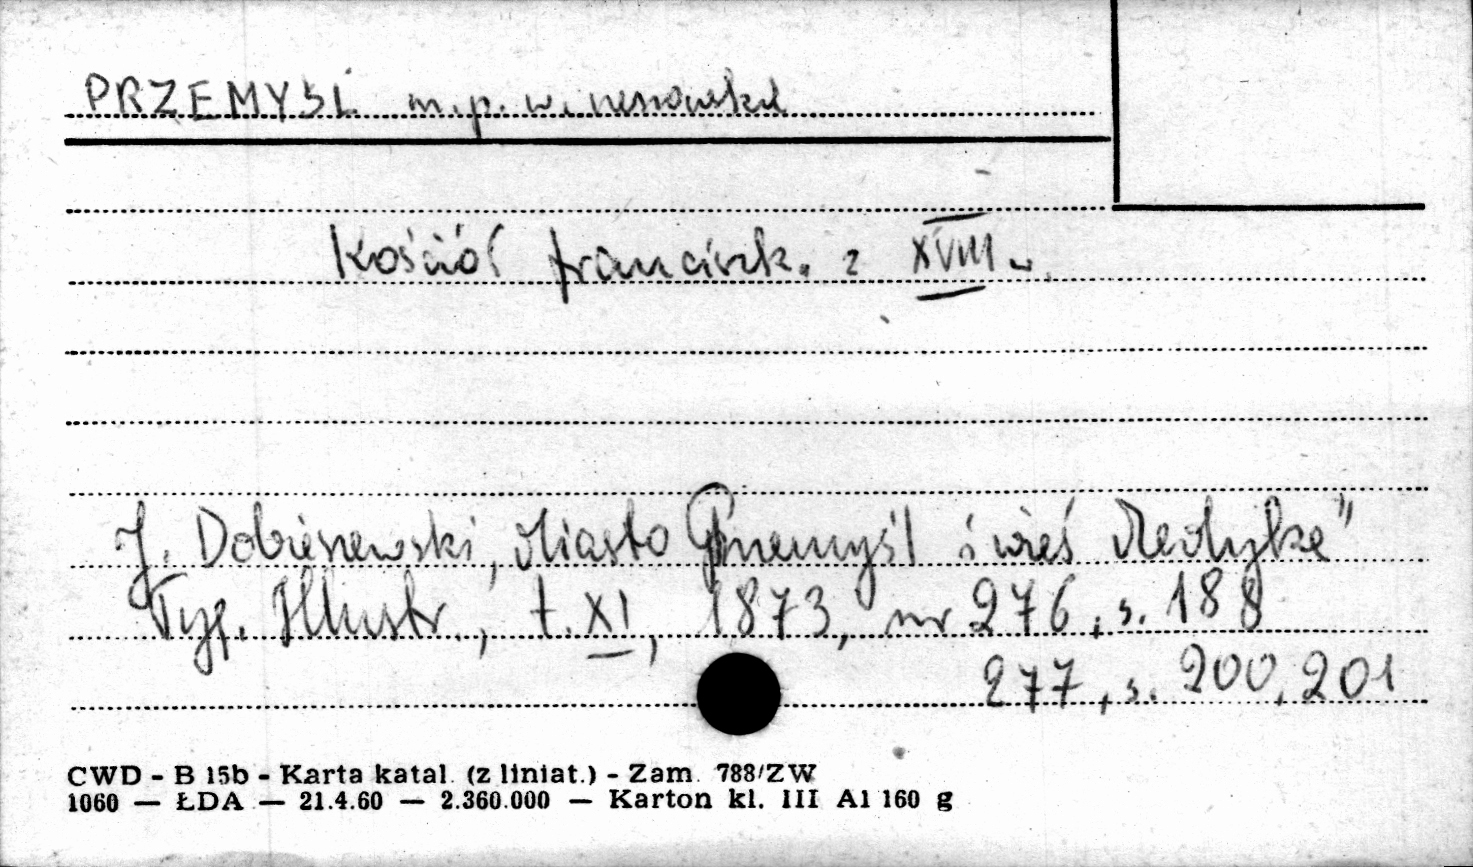 PRZEMYŚL m.p. w. rzeszowskie
Kościół francisk. z XVIII w.
J. Dobieszewski, „Miasto Przemyśl i wieś Medyka"
Tyg. Illustr., t. XI, 1873, nr 276, s. 188
277, s. 200, 201
CWD - B 15b - Karta katal. (z liniat.) - Zam. 788/ZW
1060 — ŁDA — 21.4.60 — 2.360.000 — Karton kl. III A1 160 g